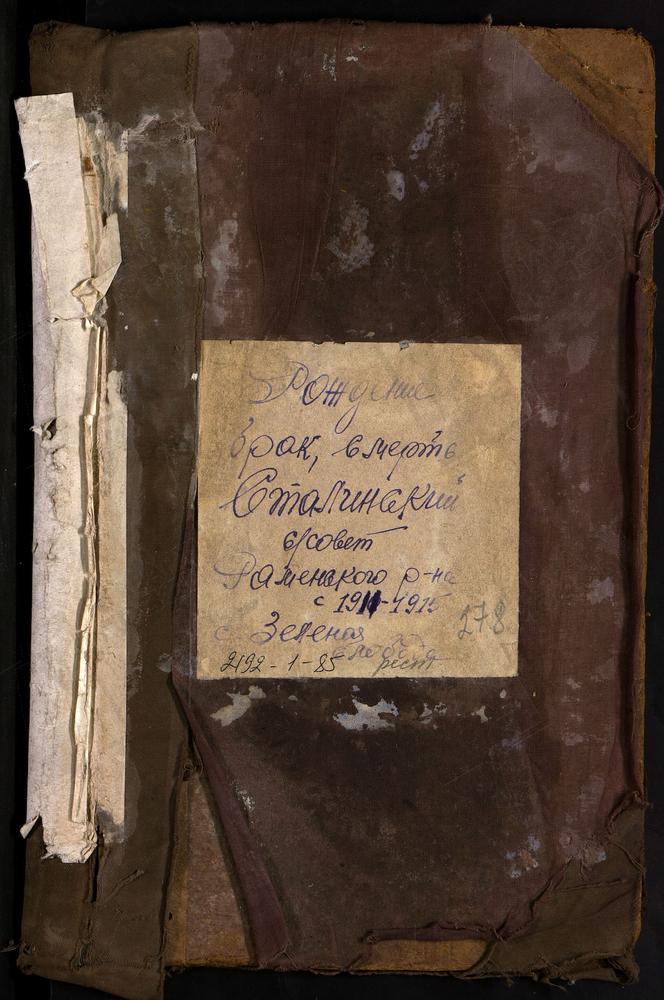 Рождение
брак, смерть
Сталинский
с/совет
Раменского р-на
с 1911-1915
278
с. Зеленая
слобода
2192-1-85 рест